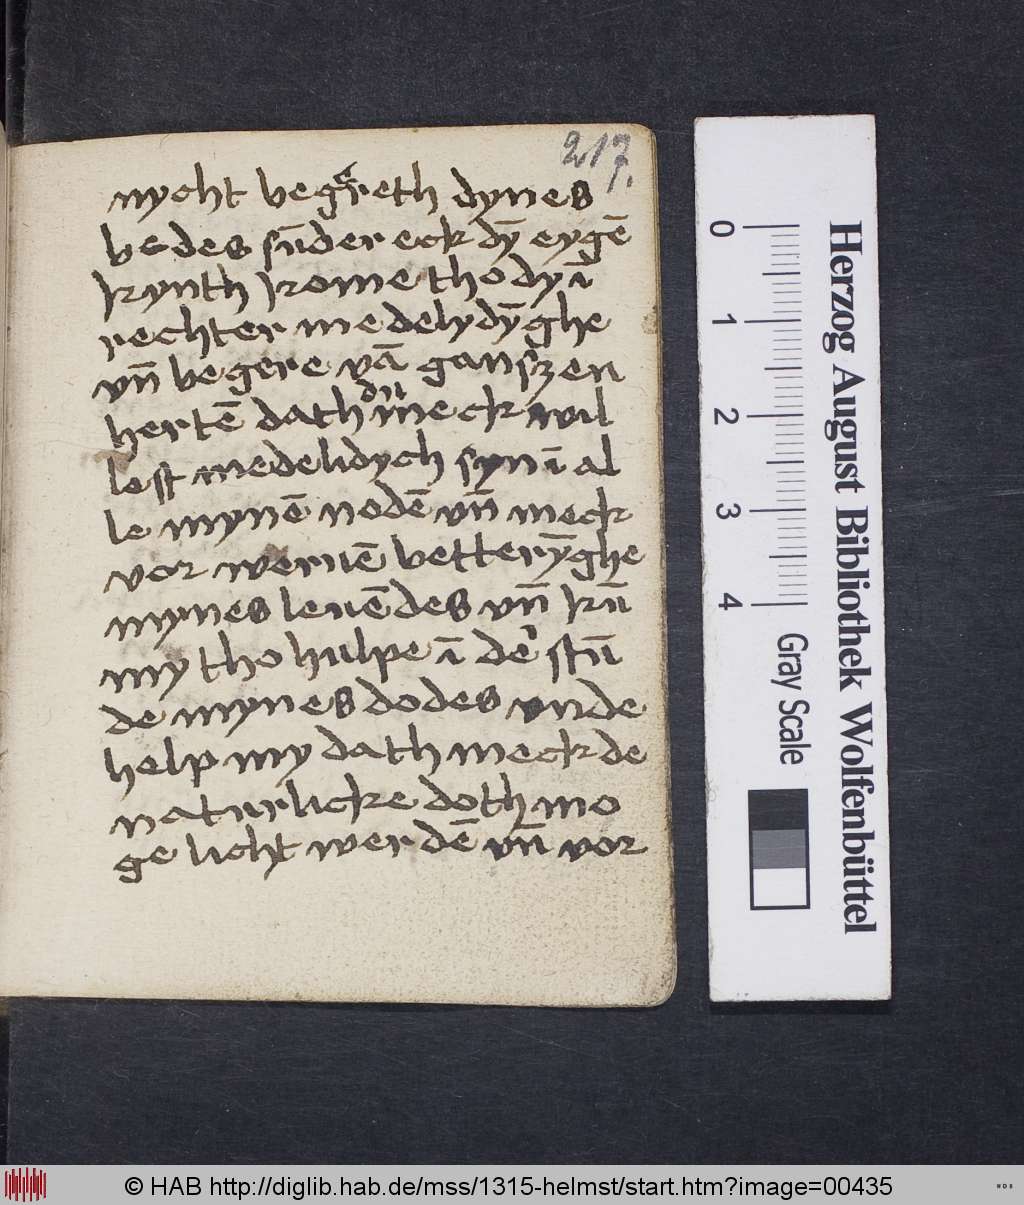 217.
nycht begereth dynes
bedes sūder eck dȳ eygē
kynth kome tho dy ī
rechter medelydȳghe
vn̄ begere vā ganszen
hertē dath du meck wil
lest medelidych syn ī al
le mynē nodē vn̄ meck
vor wernē betterȳghe
mynes leuēdes vn̄ kū
my tho hulpe ī de' stū
de mynes dodes vnde
help my dath meck de
naturlicke doth mo
ge licht werdē vn̄ vor
Herzog August Bibliothek Wolfenbüttel
0 1 2 3 4
Gray Scale
© HAB http://diglib.hab.de/mss/1315-helmst/start.htm?image=00435